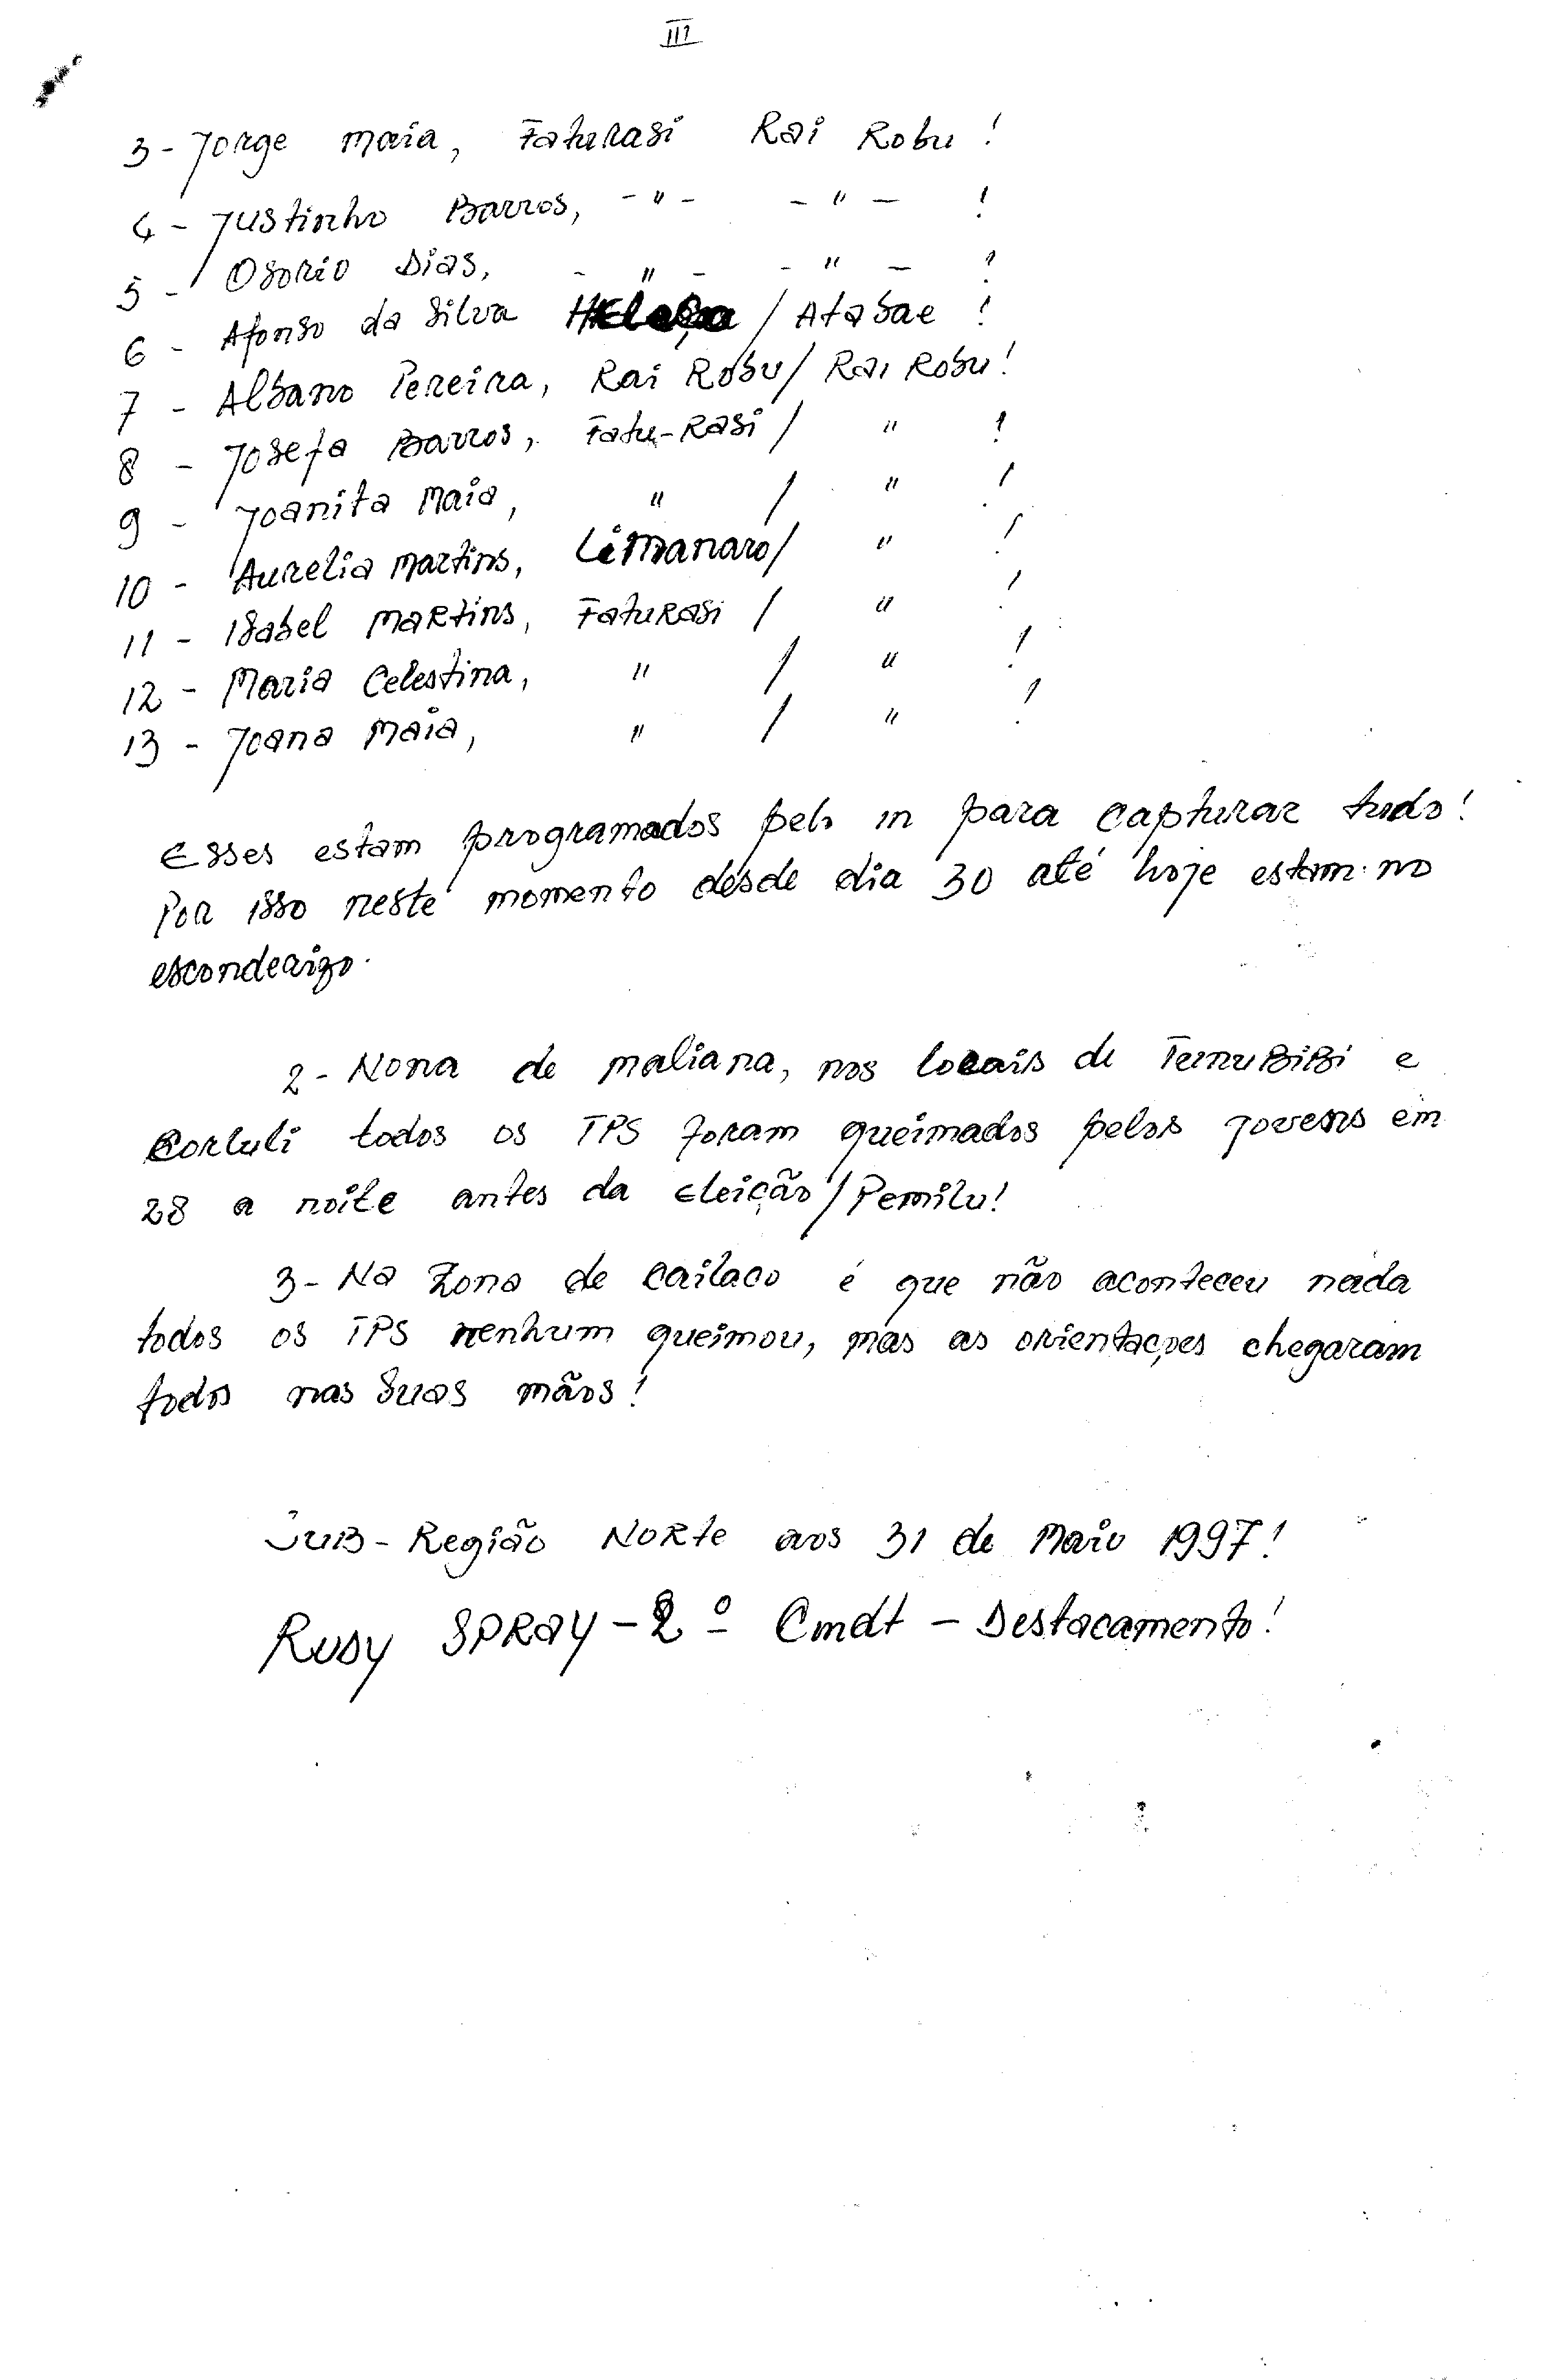 III
3 - Jorge Maia, Faturasi Rai Robu!
4 - Justinho Barros, - " - - " - !
5 - Osorio Dias, - " - - " - !
6 - Afonso da Silva / Atabae !
7 - Albano Pereira, Rai Robu / Rai Robu!
8 - Josefa Barros, Fatu-Rasi / " !
9 - Joanita Maia, " / " !
10 - Aurelia Martins, Limanaro / " !
11 - Isabel Martins, Faturasi / " !
12 - Maria Celestina, " / " !
13 - Joana Maia, " / " !
Esses estam programados pelo in para capturar tudo!
Por isso neste momento desde dia 30 até hoje estam no
esconderizo.
2 - Nona de Maliana, nos locais de TunuBiBi e
Corluli todos os TPS foram queimados pelos jovens em
28 a noite antes da Eleição / Pemilu!
3 - Na Zona de Cailaco é que não aconteceu nada
todos os TPS nenhum queimou, mas as orientações chegaram
todos nas suas mãos!
Sub-Região Norte aos 31 de Maio 1997!
Ruby Spray - 2º Cmdt - Destacamento!